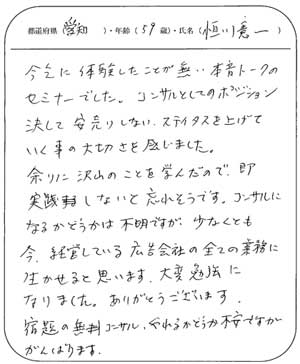 都道府県(愛知)・年齢(59歳)・氏名(恒川憲一)
今迄に体験したことが無い本音トークの
セミナーでした。コンサルとしてのポジション
決して安売りしない、ステイタスを上げて
いく事の大切さを感じました。
余りに沢山のことを学んだので、即
実践しないと忘れそうです。コンサルに
なるかどうかは不明ですが、少なくとも
今、経営している広告会社の全ての業務に
生かせると思います。大変勉強に
なりました。ありがとうございます。
宿題の無料コンサル、やれるかどうか不安ですが
がんばります。